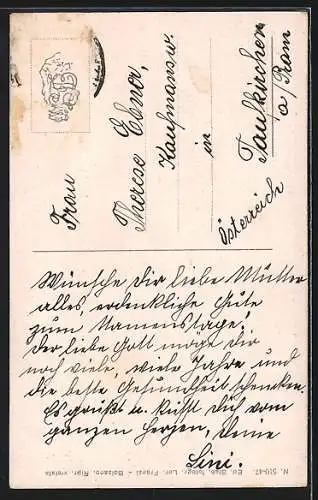 Frau
Therese Ebner,
Kaufmannsw.
in
Taufkirchen
a/Pram
Österreich
Wünsche dir liebe Mutter
alles, erdenkliche Gute
zum Namenstage!
Der liebe Gott mög dir
noch viele, viele Jahre und
die beste Gesundheit schencken.
Es grüßt u. küßt dich vom
ganzen Herzen, deine
Lini.
N. 510-47. Ed. Stab. fotogr. Lor. Fränzl - Bolzano, Ripr. vietata